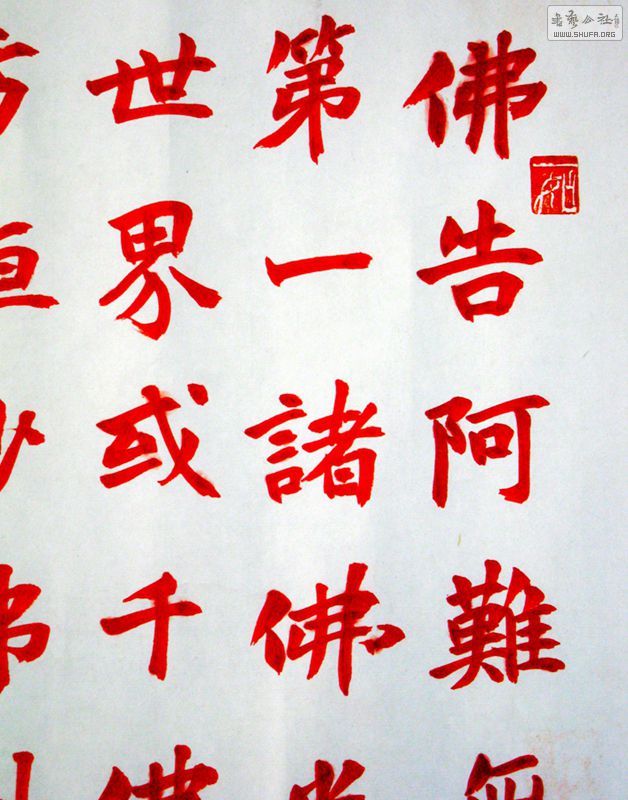 佛告阿難無
第一諸佛
世界或千佛
書藝公社
WWW.SHUFA.ORG